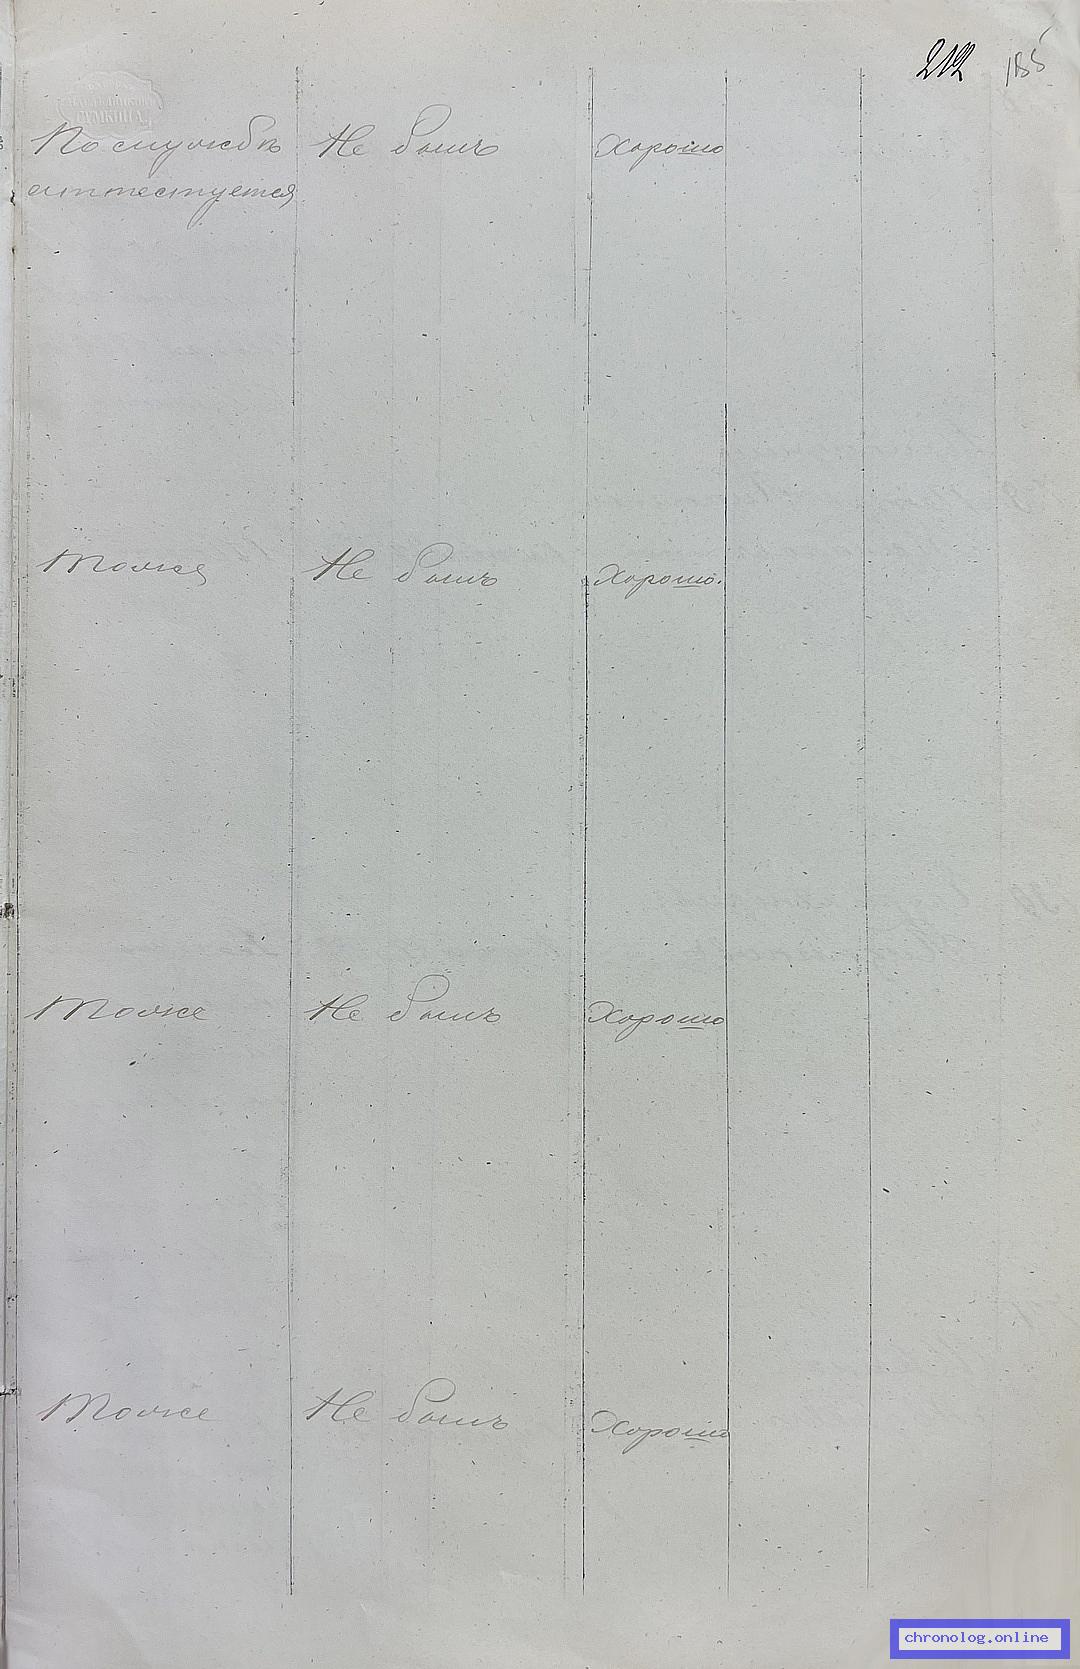 212 185
По службѣ Не былъ Хорошо
аттестуется
Тоже Не былъ Хорошо.
Тоже Не былъ Хорошо
Тоже Не былъ Хорошо
chronolog.online